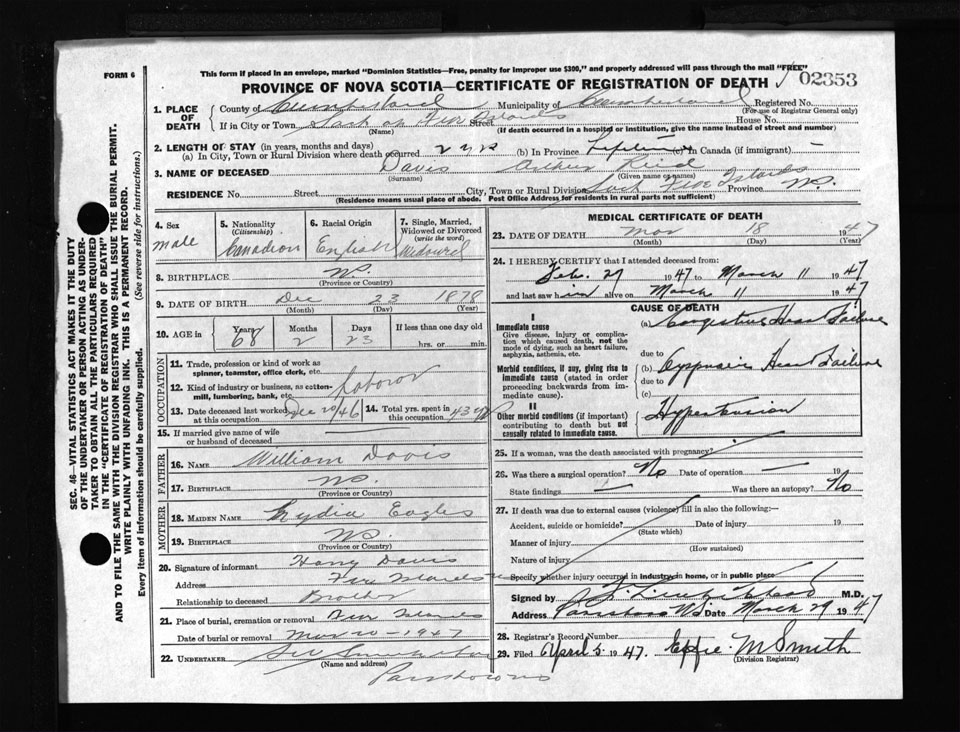 This form if placed in an envelope, marked "Dominion Statistics—Free, penalty for improper use $300," and properly addressed will pass through the mail "FREE"
FORM 6
PROVINCE OF NOVA SCOTIA—CERTIFICATE OF REGISTRATION OF DEATH 02353
1. PLACE OF DEATH County of Cumberland Municipality of Cumberland Registered No.
(For use of Registrar General only)
If in City or Town Five Islands Street House No.
(Name) (If death occurred in a hospital or institution, give the name instead of street and number)
2. LENGTH OF STAY (in years, months and days)
(a) In City, Town or Rural Division where death occurred 2 yrs (b) In Province Lifetime (c) In Canada (if immigrant) —
3. NAME OF DECEASED Davis
(Surname) (Given name or names)
RESIDENCE No. Street City, Town or Rural Division Five Islands Province N.S.
(Residence means usual place of abode. Post Office Address for residents in rural parts not sufficient)
4. Sex
male
5. Nationality
(Citizenship)
Canadian
6. Racial Origin
English
7. Single, Married, Widowed or Divorced
(write the word)
Widowed
8. BIRTHPLACE N.S.
(Province or Country)
9. DATE OF BIRTH Dec 23 1878
(Month) (Day) (Year)
10. AGE in Years Months Days If less than one day old
68 2 23 hrs. or min.
OCCUPATION
11. Trade, profession or kind of work as spinner, teamster, office clerk, etc.
12. Kind of industry or business, as cotton-mill, lumbering, bank, etc. Laborer
13. Date deceased last worked at this occupation Dec 20/46
14. Total yrs. spent in this occupation 43 yrs
15. If married give name of wife or husband of deceased
FATHER
16. NAME William Davis
17. BIRTHPLACE N.S.
(Province or Country)
MOTHER
18. MAIDEN NAME Lydia Eagles
19. BIRTHPLACE N.S.
(Province or Country)
20. Signature of informant Harry Davis
Address Five Islands
Relationship to deceased Brother
21. Place of burial, cremation or removal Five Islands
Date of burial or removal Mar 20 - 1947
22. UNDERTAKER
(Name and address)
Parrsboro NS
MEDICAL CERTIFICATE OF DEATH
23. DATE OF DEATH Mar 18 1947
(Month) (Day) (Year)
24. I HEREBY CERTIFY that I attended deceased from:
Feb. 27 1947 to March 11 1947
and last saw him alive on March 11 1947
CAUSE OF DEATH
I
Immediate cause
Give disease, injury or complication which caused death, not the mode of dying, such as heart failure, asphyxia, asthenia, etc.
(a) Congestive Heart Failure
due to
Morbid conditions, if any, giving rise to immediate cause (stated in order proceeding backwards from immediate cause).
(b) Heart Failure
due to
(c)
II
Other morbid conditions (if important) contributing to death but not causally related to immediate cause.
Hypertension
25. If a woman, was the death associated with pregnancy?
26. Was there a surgical operation? No Date of operation — 19
State findings — Was there an autopsy? No
27. If death was due to external causes (violence) fill in also the following:—
Accident, suicide or homicide? Date of injury 19
(State which)
Manner of injury
(How sustained)
Nature of injury
Specify whether injury occurred in industry, in home, or in public place
Signed by M.D.
Address Parrsboro N.S. Date March 29 1947
28. Registrar's Record Number
29. Filed April 5 1947. Effie M Smith
(Division Registrar)
SEC. 46—VITAL STATISTICS ACT MAKES IT THE DUTY
OF THE UNDERTAKER OR PERSON ACTING AS UNDERTAKER TO OBTAIN ALL THE PARTICULARS REQUIRED
IN THE "CERTIFICATE OF REGISTRATION OF DEATH"
AND TO FILE THE SAME WITH THE DIVISION REGISTRAR WHO SHALL ISSUE THE BURIAL PERMIT.
WRITE PLAINLY WITH UNFADING INK. THIS IS A PERMANENT RECORD.
Every item of information should be carefully supplied. (See reverse side for instructions.)